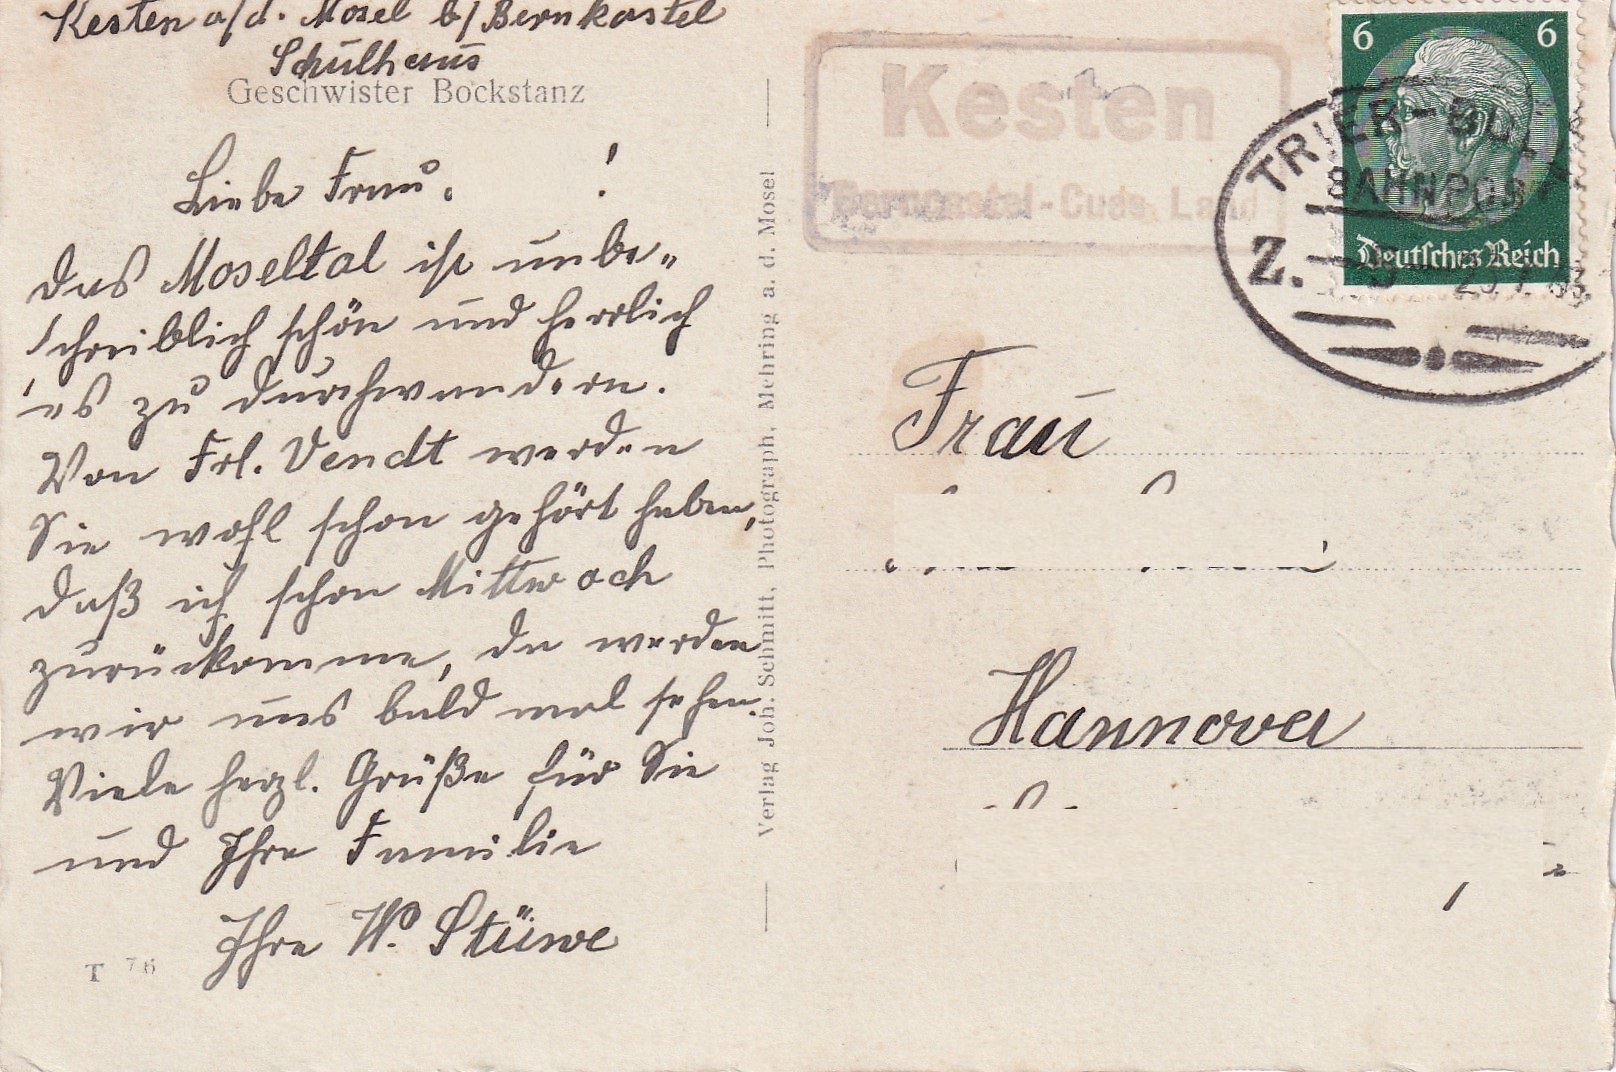 Kesten a/d. Mosel b/Bernkastel
Schulhaus
Geschwister Bockstanz
Liebe Frau. !
Das Moseltal ist unbe„
schreiblich schön und herrlich
es zu durchwandern.
Von Frl. Vendt werden
Sie wohl schon gehört haben,
daß ich schon Mittwoch
zurückomme, da werden
wir uns bald mal sehen.
Viele herzl. Grüße für Sie
und Ihre Familie
Ihre W. Stüwe
T 76
Verlag Joh. Schmitt, Photograph, Mehring a. d. Mosel
Kesten
Berncastel-Cues Land
6 6
Deutsches Reich
TRIER-BULLAY
BAHNPOST
Z.
Frau
Hannover